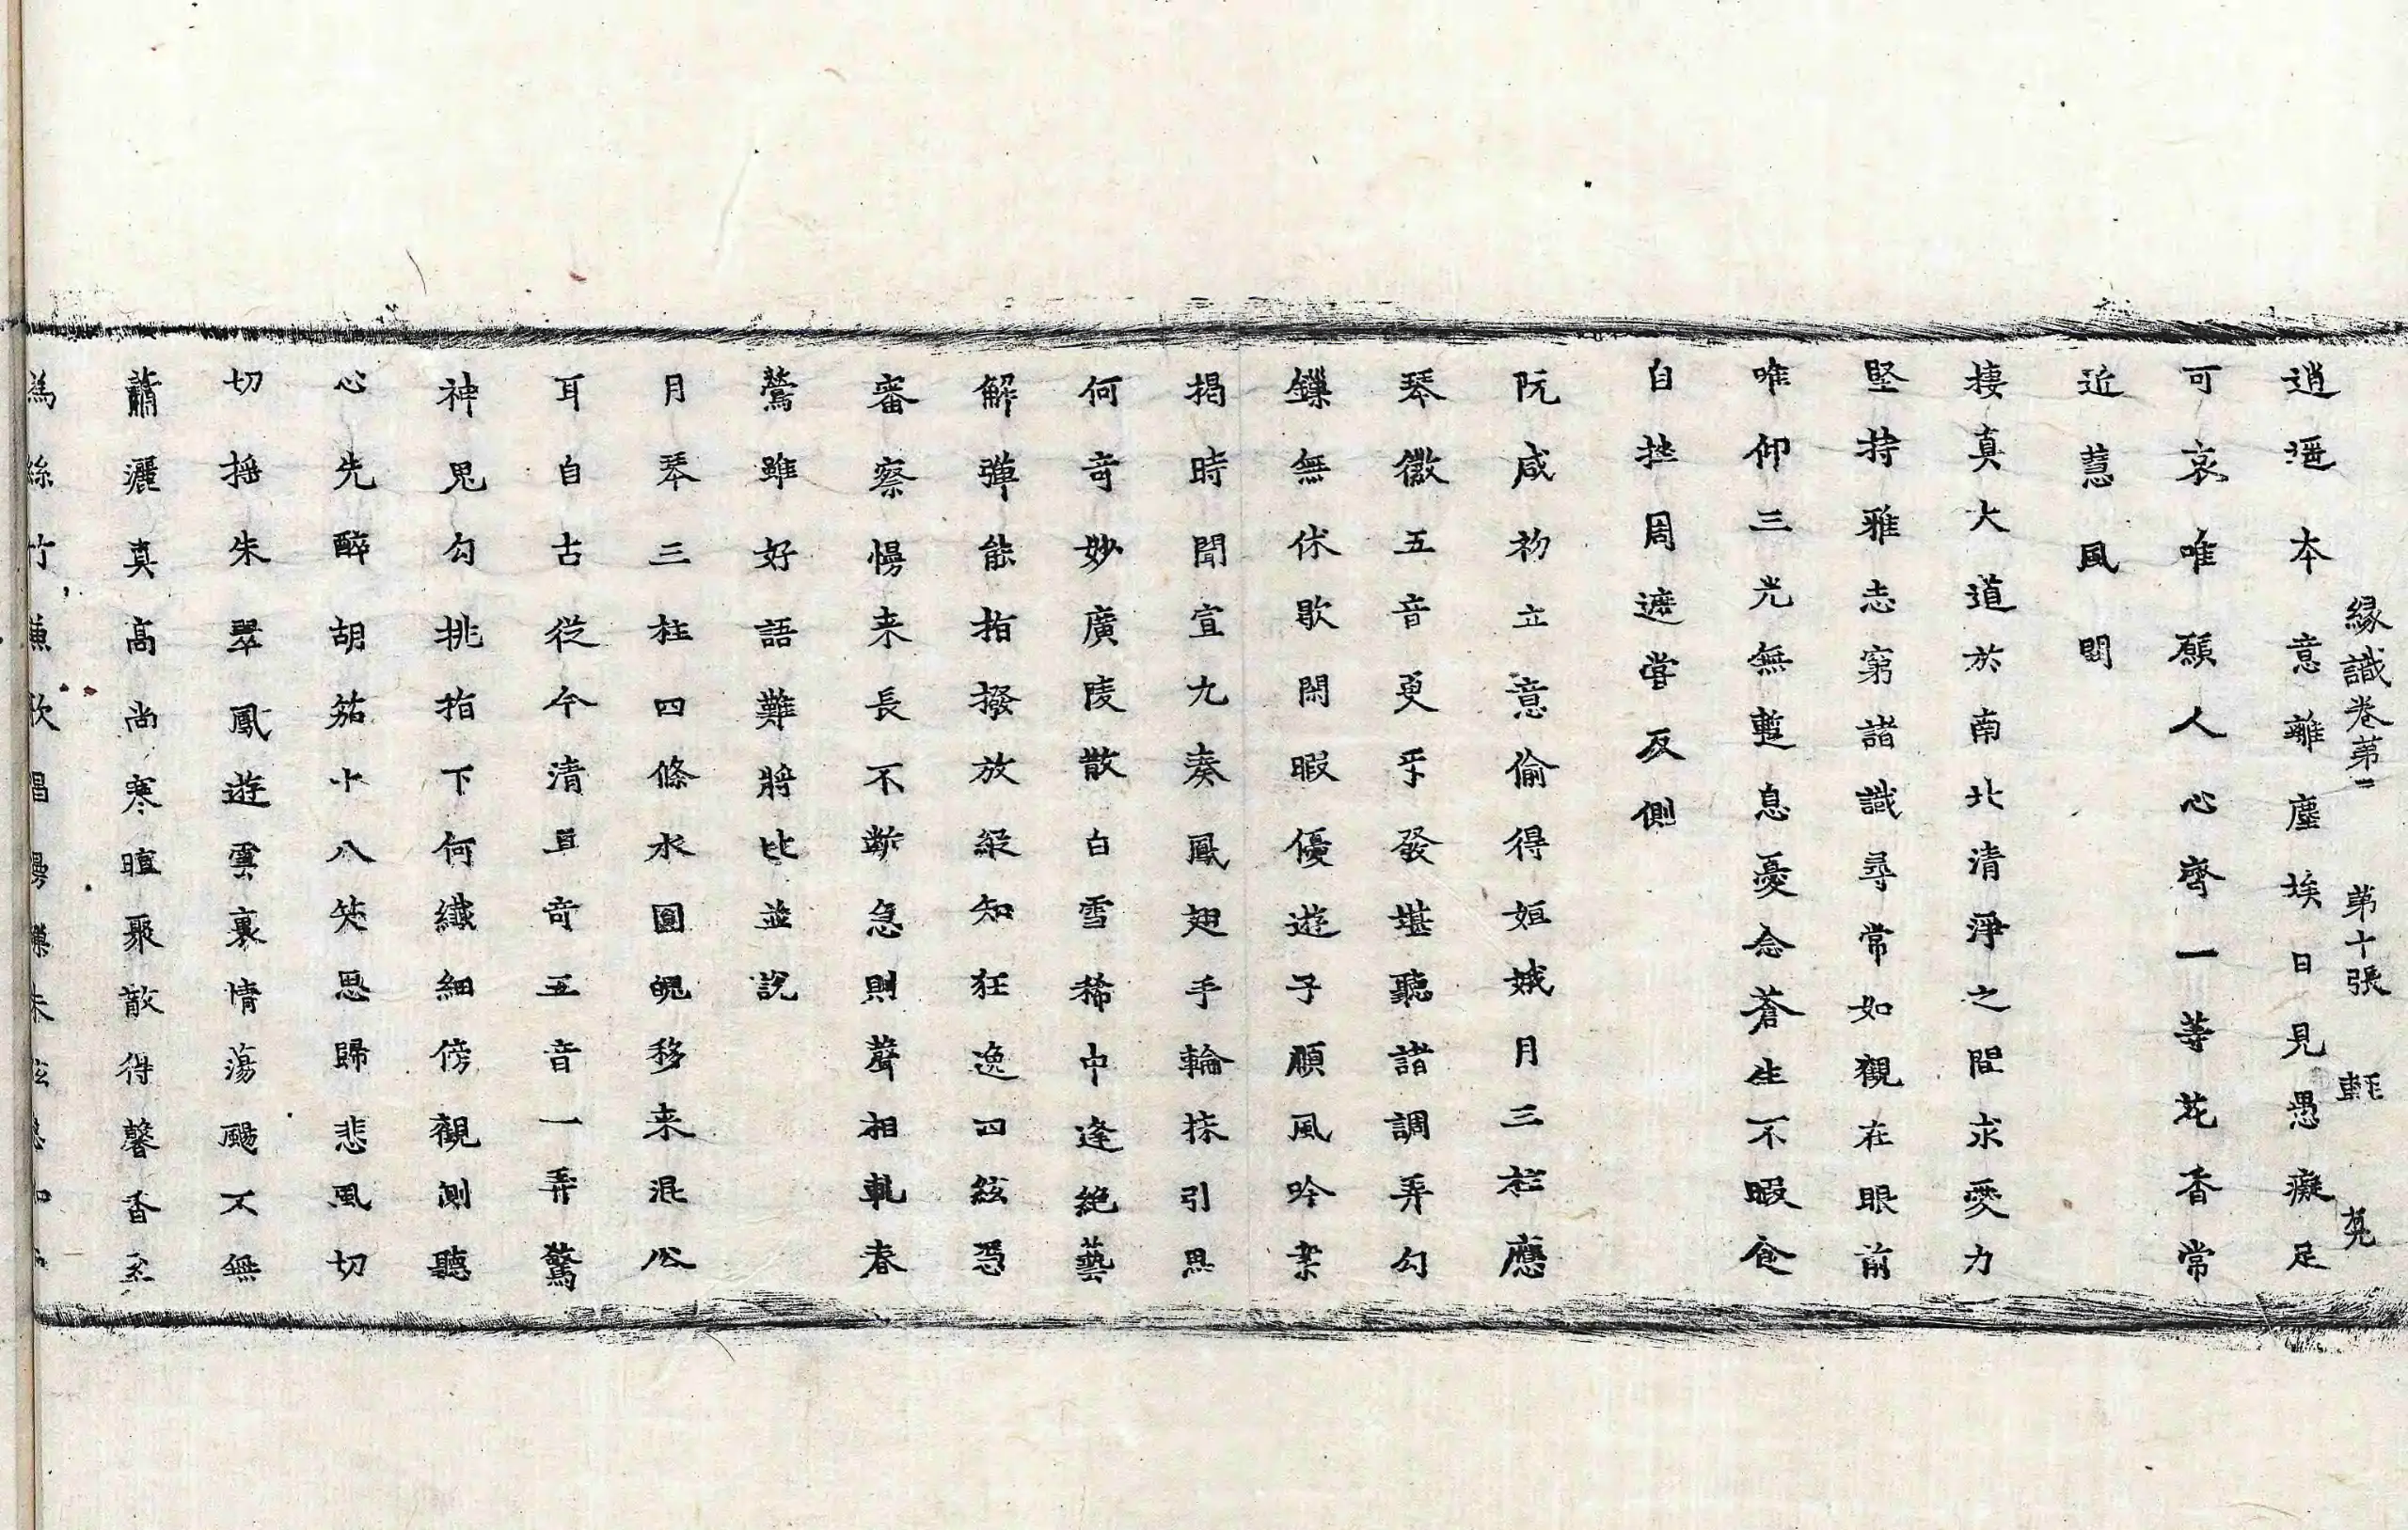 縁識卷第一 第十張 䡖 堯
逍遥本意離塵埃日見愚癡足
可哀唯願人心齊一等花香常
近慧風開
棲真大道於南北清淨之間求愛力
堅持雅志窮諸識尋常如觀在眼前
唯仰三光無蹔息憂念蒼生不暇食
自挫周遮甞反側
阮咸初立意偷得姮娥月三柱應
琴徽五音更乎發堪聽諸調弄勾
鏁無休歇閑暇優遊子順風吟亲
揭時聞宣九奏鳳翅手輪抹引思
何奇妙廣陵散白雪稀中逢絶藝
解彈能指撥放緩知狂逸四絃憑
審察慢来長不斷急則聲相軋春
鶯雖好語難將比並説
月琴三柱四條水圓魄移来混公
耳自古從今清且奇五音一弄驚
神鬼勾挑指下何纖細傍觀測聽
心先醉胡笳十八笑思歸悲風切
切揺朱翠鳳遊雲裏情蕩颺不無
蕭灑真高尚寒暄聚散得馨香
為絲竹